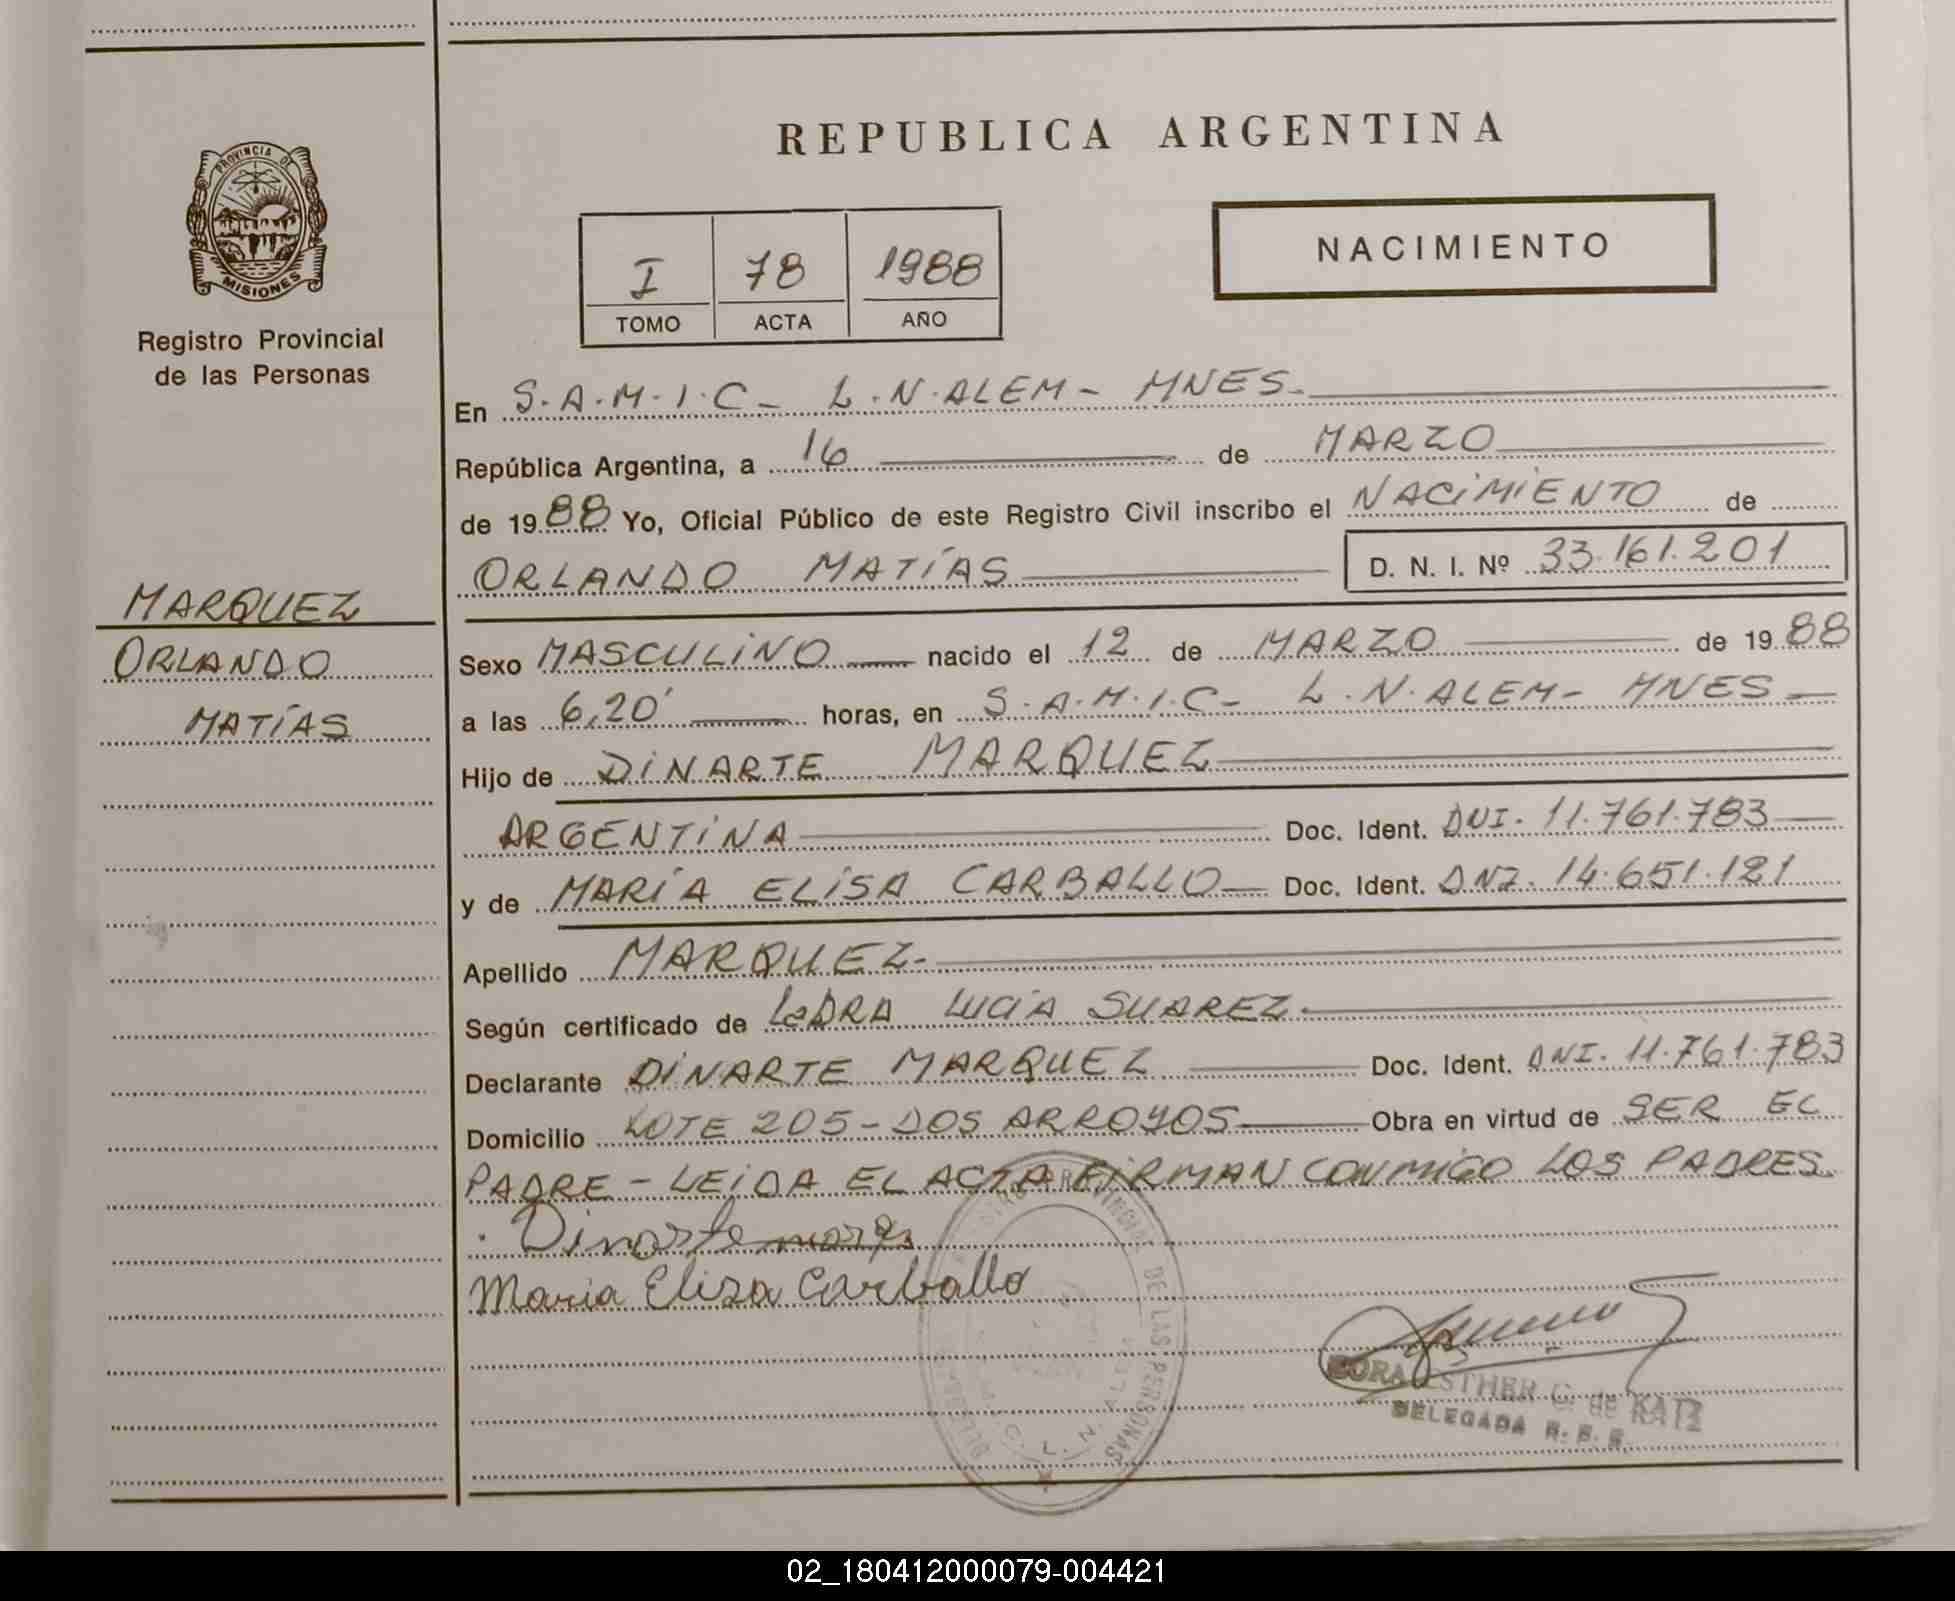 REPUBLICA ARGENTINA
PROVINCIA DE
MISIONES
Registro Provincial
de las Personas
I 78 1988
TOMO ACTA AÑO
NACIMIENTO
En S.A.M.I.C- L.N.ALEM- MNES-
República Argentina, a 16 de MARZO
de 1988 Yo, Oficial Público de este Registro Civil inscribo el NACIMIENTO de
ORLANDO MATÍAS D. N. I. Nº 33.161.201
MARQUEZ
ORLANDO
MATÍAS
Sexo MASCULINO nacido el 12 de MARZO de 1988
a las 6,20' horas, en S.A.M.I.C- L.N.ALEM- MNES
Hijo de DINARTE MARQUEZ
ARGENTINA Doc. Ident. DNI. 11.761.783
y de MARÍA ELISA CARBALLO Doc. Ident. DNI. 14.651.121
Apellido MARQUEZ-
Según certificado de La DRA LUCÍA SUAREZ.
Declarante DINARTE MARQUEZ Doc. Ident. DNI. 11.761.783
Domicilio LOTE 205-DOS ARROYOS Obra en virtud de SER EL
PADRE - LEIDA EL ACTA FIRMAN CONMIGO LOS PADRES.
Dinarte
Maria Elisa Carballo
PROVINCIAL DE LAS PERSONAS
L. N. ALEM
ESTHER C. de KATZ
DELEGADA
02_180412000079-004421